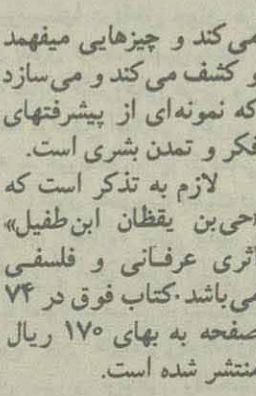 می‌کند و چیزهایی میفهمد
و کشف می‌کند و می‌سازد
که نمونه‌ای از پیشرفتهای
فکر و تمدن بشری است.
لازم به تذکر است که
«حی‌بن یقظان ابن‌طفیل»
اثری عرفانی و فلسفی
می‌باشد. کتاب فوق در ۷۴
صفحه به بهای ۱۷۰ ریال
منتشر شده است.